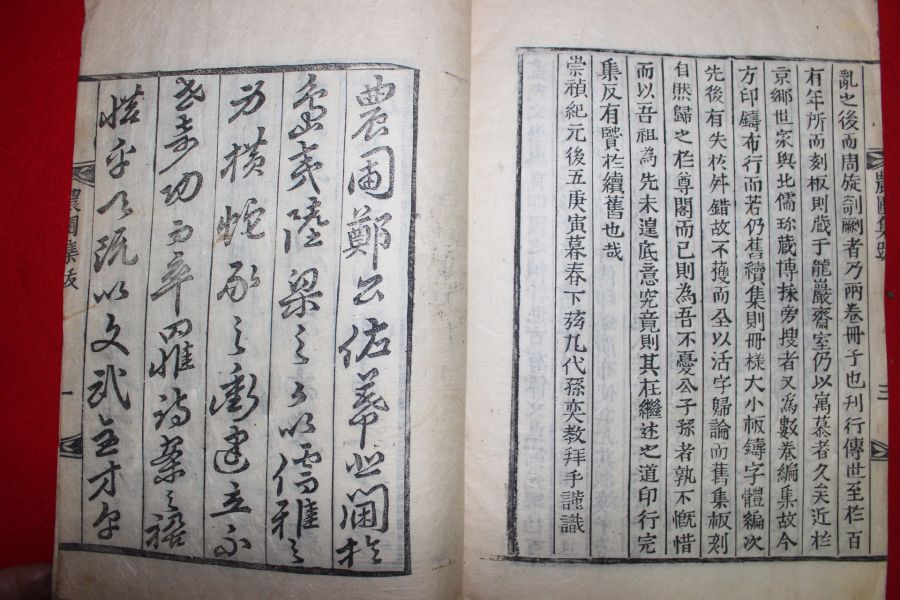 亂之後而周旋訓劚者乃兩卷冊子也刊行傳世至於百
有年所而刻板則蔵于龍巖齋室仍以寓慕者久矣近於
京鄉世家與北儒珎蔵博採旁搜者又為數卷編集故今
方印鑄布行而若仍舊續集則冊樣大小板鑄字體編次
先後有失於舛錯故不獲而全以活字歸論而舊集板刻
自然歸之於尊閣而已則為吾不憂公子孫者孰不慨惜
而以吾祖為先未遑底意究竟則其在繼述之道印行完
集反有贒於續舊也哉
崇禎紀元後五庚寅暮春下菚九代孫奕教拜手謹識
農圃集
三
農圃鄭公佐幕北閫於
島夷陸梁之以儒雅之
力橫蛇豕之衝建立不
世奇功而卒罹詩案之禍
惜乎以文武全才
農圃集跋
一